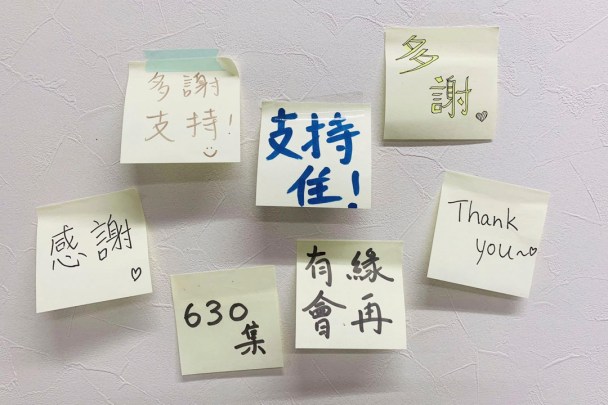 多謝
支持!
支持
住!
多
謝
感謝
630
集
有緣
會再
Thank
you~